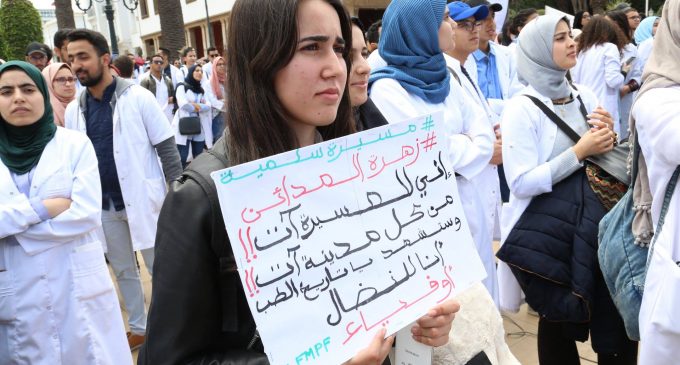 #مسيرة سلمية
#زهرة المدائن
إني المسيرة آت!!
من كل مدينة آت!!
وستشهد يا تاريخ الطب
أنا للنضال
أوفياء
FMPF